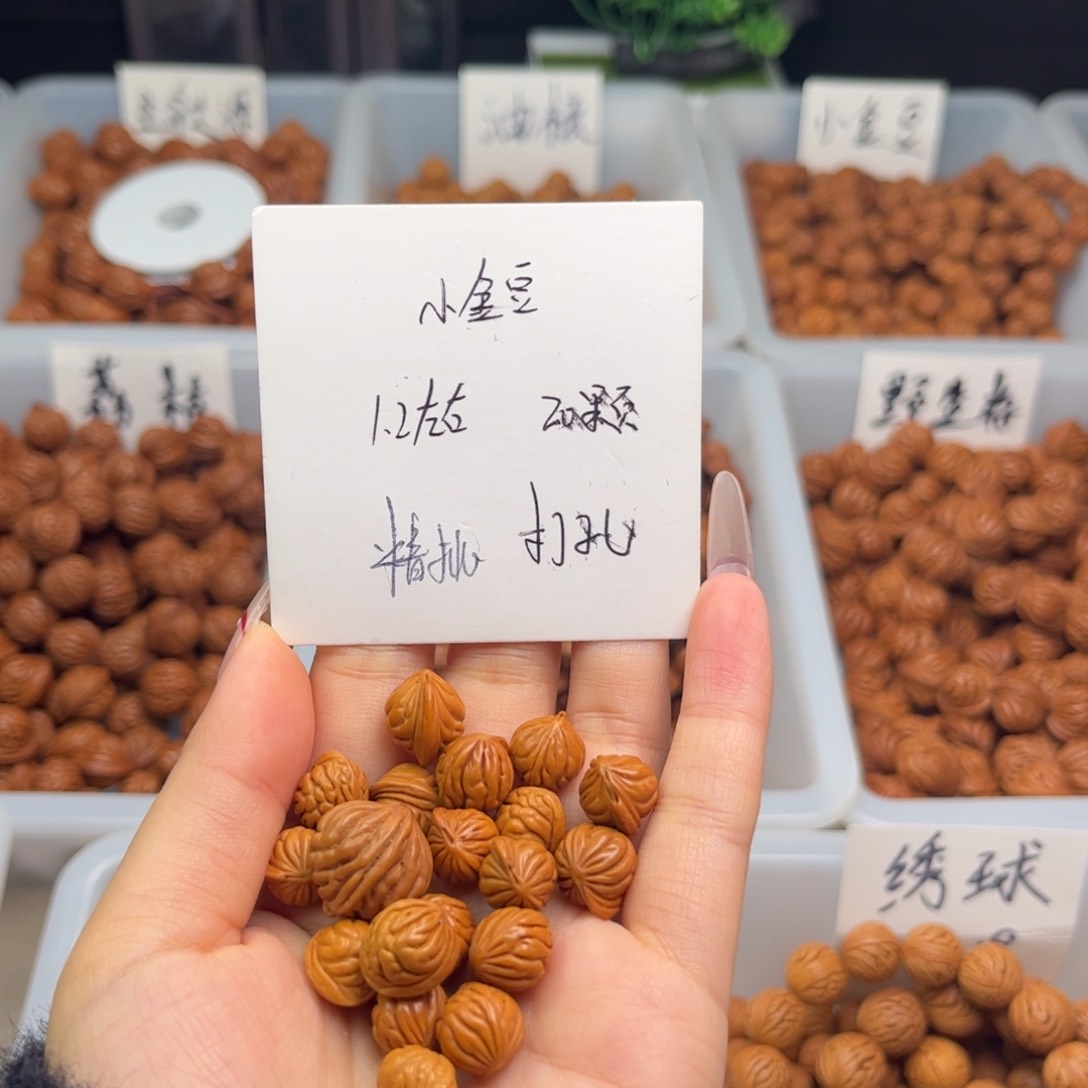 油核
小金豆
小金豆
1.2左右 20颗
精挑 打孔
野生卷
绣球